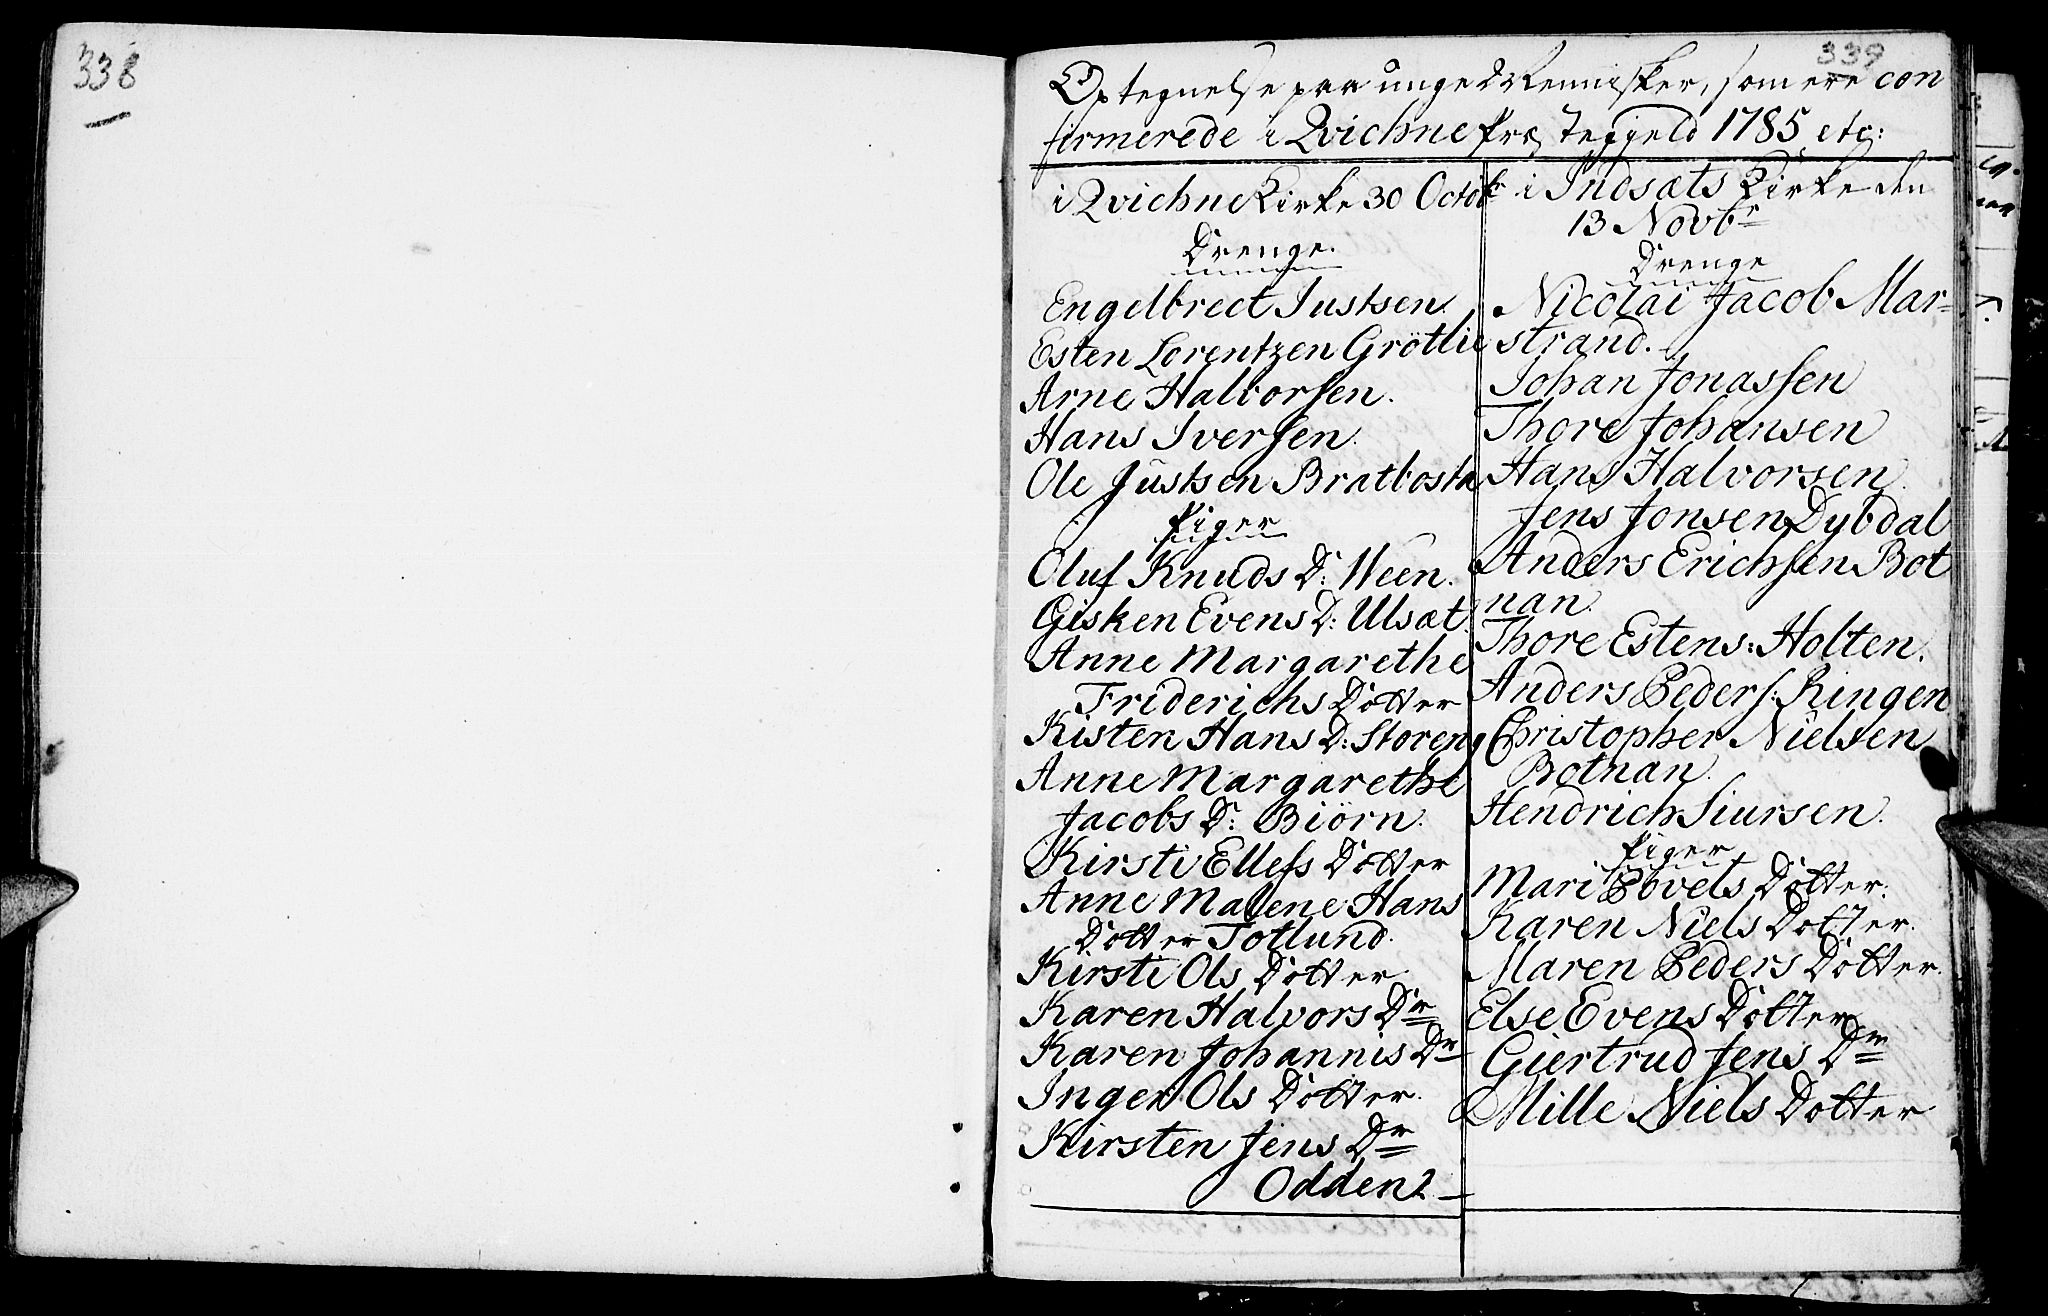 338
339
Optegnelse paa unge Mennisker, som ere con
firmerede i Qvichne Præstegjeld 1785 etc:
i Qvichne Kirke 30 Octobr
Drenge.
Engelbrect Justsen.
Esten Lorentzen Gröttlie
Arne Halvorsen.
Hans Iversen.
Ole Justsen Bratbosta
Piger
Oluf Knuds D: Ween.
Gisken Evens D: Ulsæt.
Anne Margarethe
Friderichs Dotter
Kisten Hans D: Storeng
Anne Margarethe
Jacobs D: Biörn.
Kirsti Ellefs Dotter
Anne Malene Hans
Dotter Totlund.
Kirsti Ols Dotter
Karen Halvors Dr
Karen Johannis Dr
Inger Ols Dotter.
Kirsten Jens Dr
Odden
i Indsæts Kirke den
13 Novbr
Drenge
Nicolai Jacob Mar=
strand.
Johan Jonassen
Thore Johansen
Hans Halvorsen
Jens Jonsen Dybdal
Anders Erichsen Bot
nan.
Thore Estens: Holten.
Anders Peders: Ringen
Christopher Nielsen
Botnan.
Hendrich Siursen.
Piger
Mari Povels Dotter.
Karen Niels Dotter.
Maren Peders Dotter.
Else Evens Dotter
Giertrud Jens Dr
Mille Niels Dotter